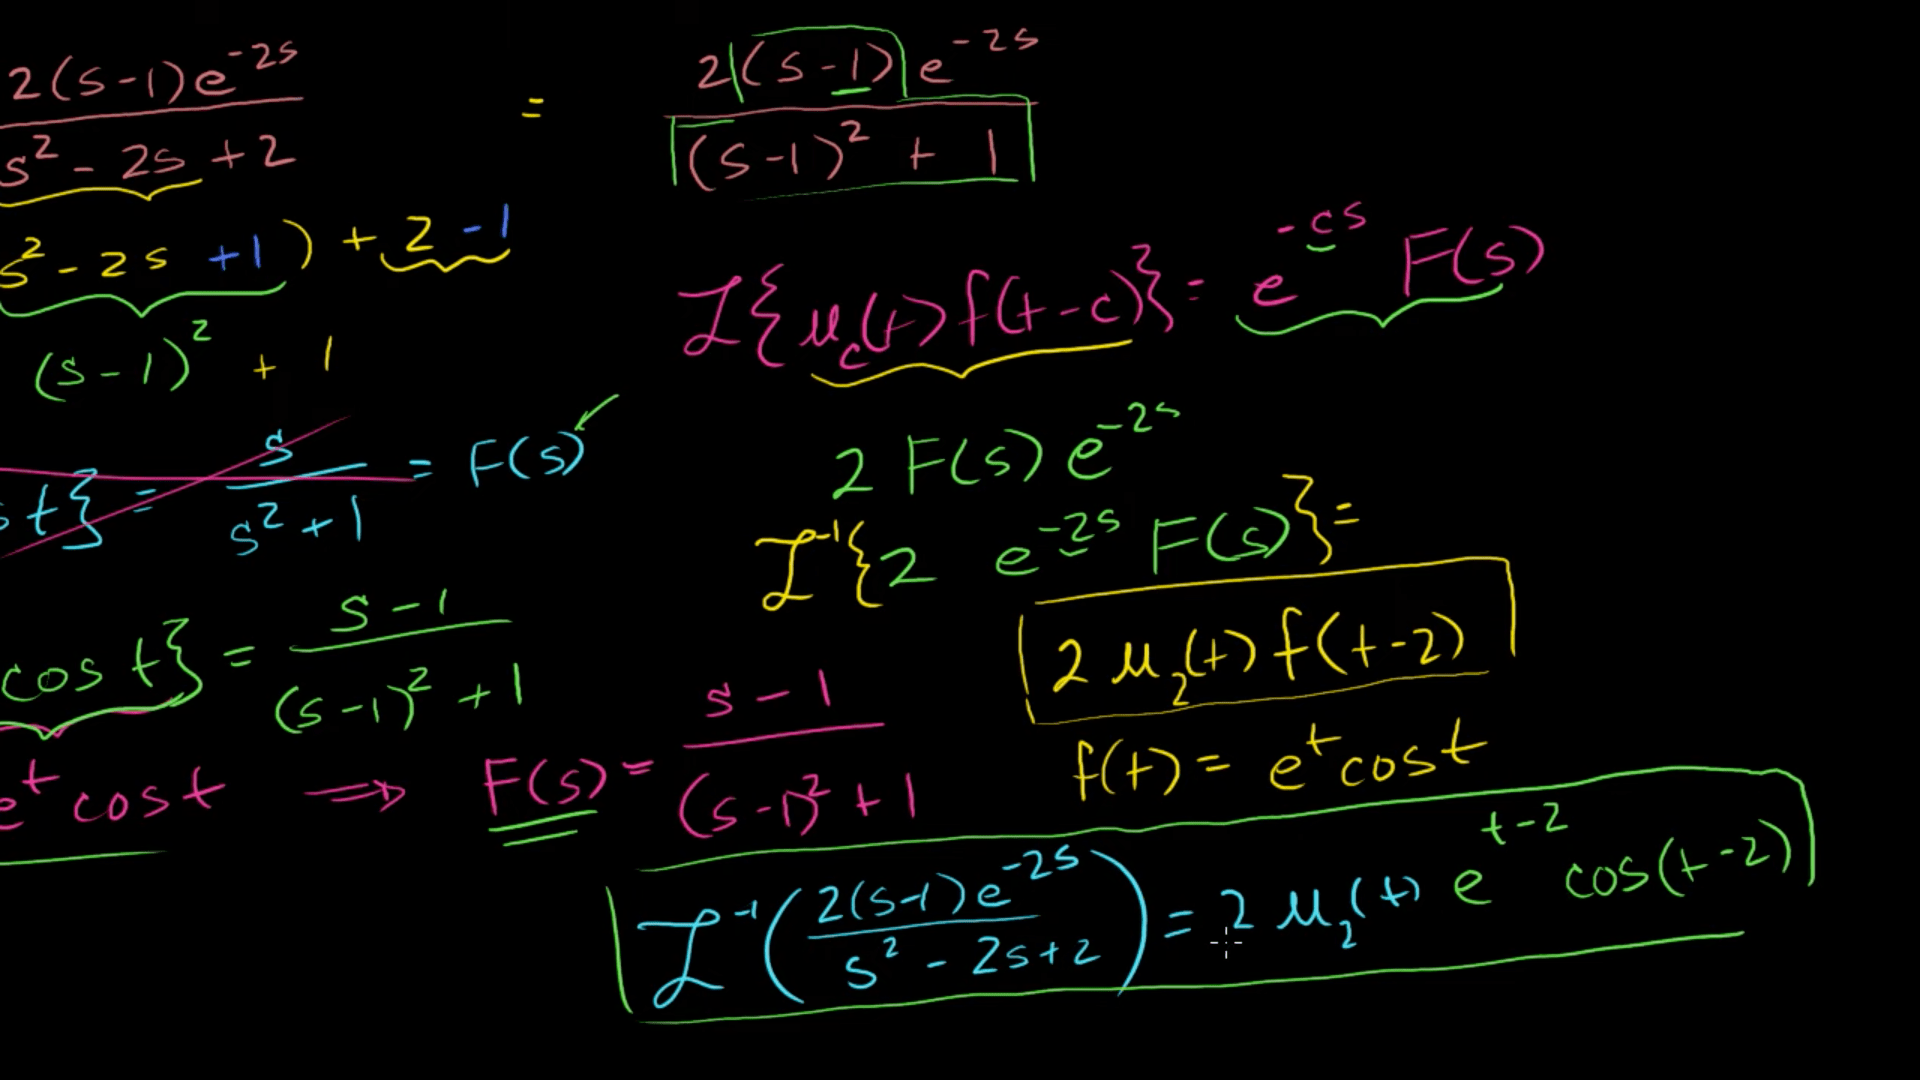 2(s-1)e^{-2s} / s² - 2s + 2 = 2(s-1)e^{-2s} / (s-1)² + 1
s² - 2s + 1) + 2 - 1
(s-1)² + 1
ℒ{μ_c(t) f(t-c)} = e^{-cs} F(s)
t} = s / s² + 1 = F(s)
2 F(s) e^{-2s}
ℒ^{-1}{2 e^{-2s} F(s)} =
cos t} = s-1 / (s-1)² + 1
2 μ₂(t) f(t-2)
e^t cos t ⇒ F(s) = s-1 / (s-1)² + 1
f(t) = e^t cos t
ℒ^{-1}(2(s-1)e^{-2s} / s² - 2s + 2) = 2 μ₂(t) e^{t-2} cos(t-2)